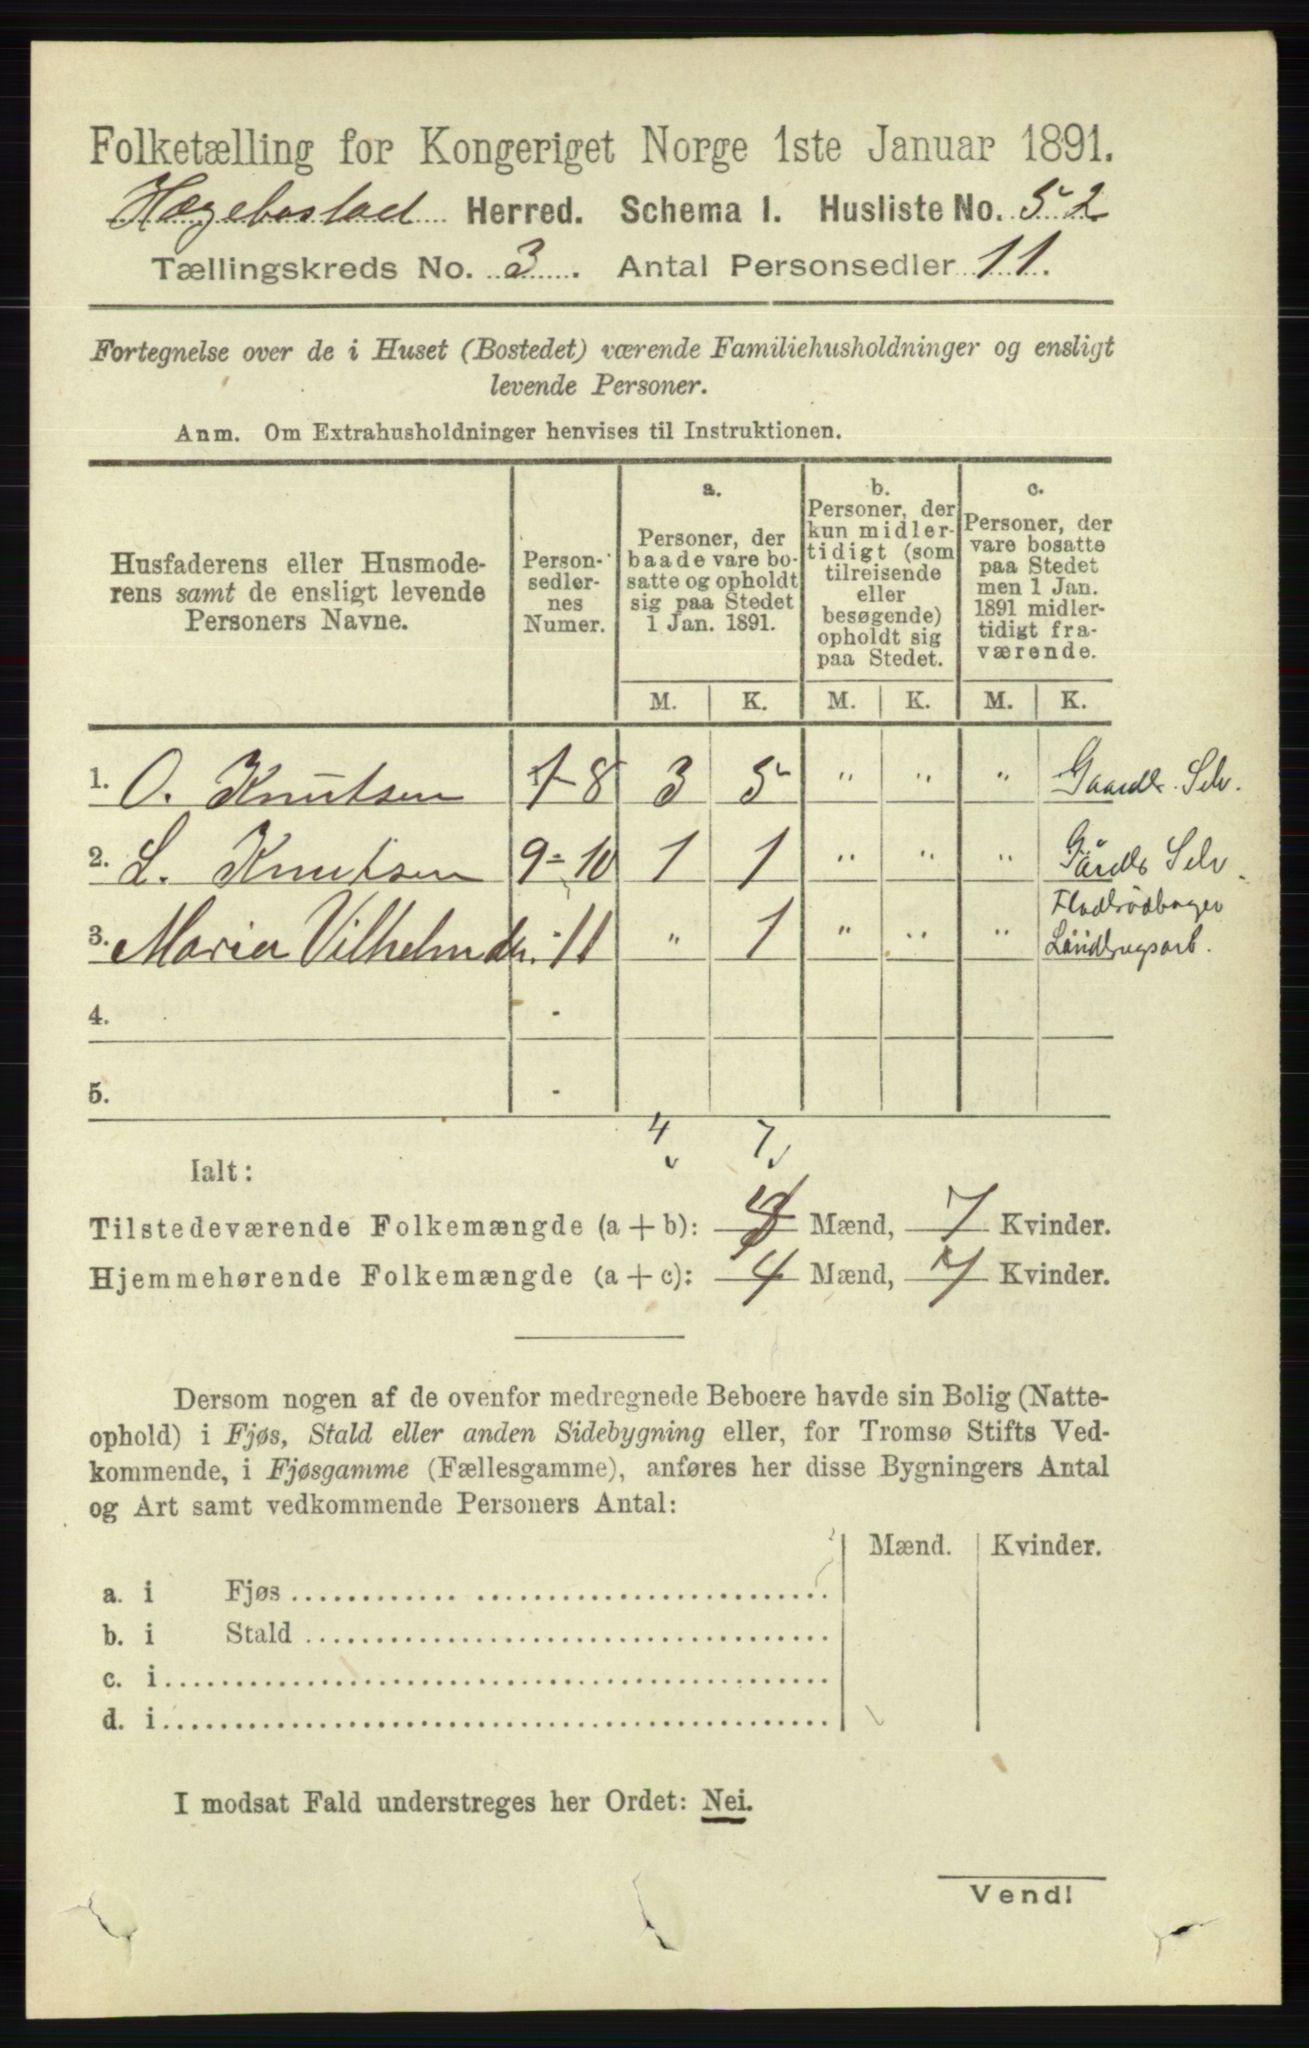 Folketælling for Kongeriget Norge 1ste Januar 1891.
Hægebostad Herred. Schema I. Husliste No. 52
Tællingskreds No. 3. Antal Personsedler 11.
Fortegnelse over de i Huset (Bostedet) værende Familiehusholdninger og ensligt
levende Personer.
Anm. Om Extrahusholdninger henvises til Instruktionen.
Husfaderens eller Husmode-
rens samt de ensligt levende
Personers Navne.
Person-
sedler-
nes
Numer.
a.
Personer, der
baade vare bo-
satte og opholdt
sig paa Stedet
1 Jan. 1891.
b.
Personer, der
kun midler-
tidigt (som
tilreisende
eller
besøgende)
opholdt sig
paa Stedet.
c.
Personer, der
vare bosatte
paa Stedet
men 1 Jan.
1891 midler-
tidigt fra-
værende.
M. K. M. K. M. K.
1. O. Knutsen 1-8 3 5 " " " Gaardb. Selv.
2. L. Knutsen 9-10 1 1 " " " Gårdb Selv
Fladbrødbager
3. Maria Vilhelmdtr. - 11 " 1 " " " Landbrugsarb.
4. -
5. -
4 7
Ialt:
Tilstedeværende Folkemængde (a + b): 4 Mænd, 7 Kvinder.
Hjemmehørende Folkemængde (a + c): 4 Mænd, 7 Kvinder.
Dersom nogen af de ovenfor medregnede Beboere havde sin Bolig (Natte-
ophold) i Fjøs, Stald eller anden Sidebygning eller, for Tromsø Stifts Ved-
kommende, i Fjøsgamme (Fællesgamme), anføres her disse Bygningers Antal
og Art samt vedkommende Personers Antal:
Mænd. Kvinder.
a. i Fjøs
b. i Stald
c. i
d. i
I modsat Fald understreges her Ordet: Nei.
Vend!